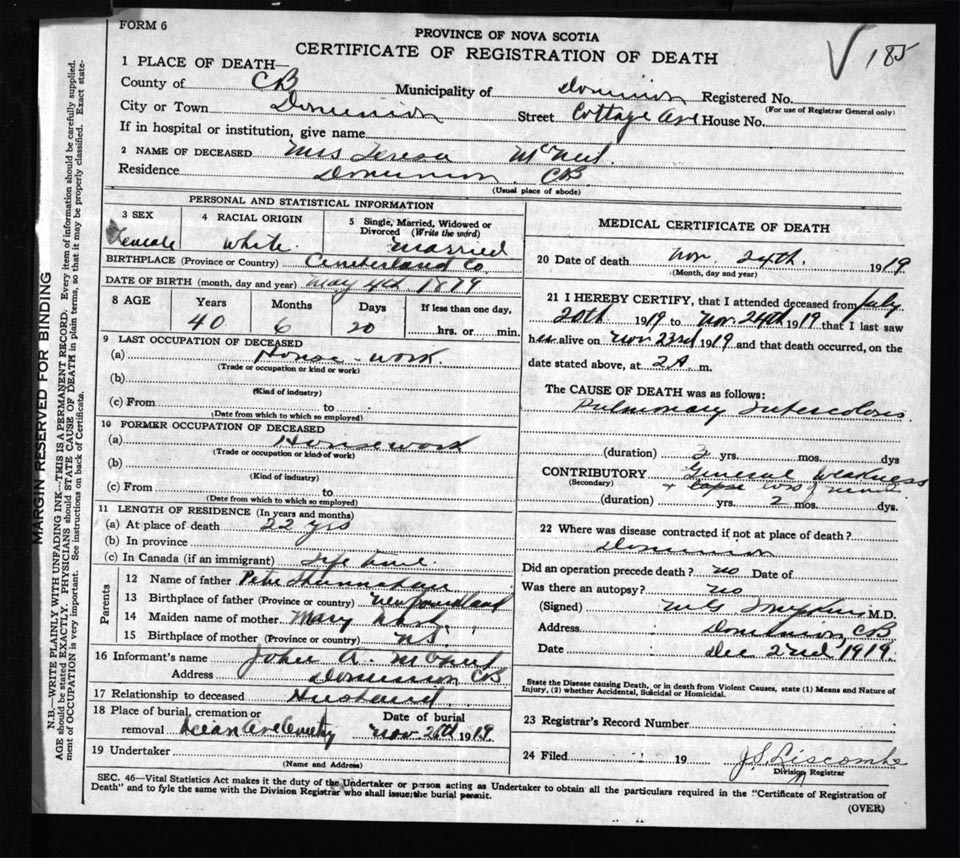 FORM 6
PROVINCE OF NOVA SCOTIA
CERTIFICATE OF REGISTRATION OF DEATH
185
1 PLACE OF DEATH—
County of CB Municipality of Dominion Registered No.
(For use of Registrar General only)
City or Town Dominion Street Cottage Ave House No.
If in hospital or institution, give name
2 NAME OF DECEASED Mrs Teresa McNeil
Residence Dominion CB
(Usual place of abode)
PERSONAL AND STATISTICAL INFORMATION
3 SEX Female
4 RACIAL ORIGIN White
5 Single, Married, Widowed or Divorced (Write the word) Married
BIRTHPLACE (Province or Country) Cumberland Co
DATE OF BIRTH (month, day and year) May 4th 1879
8 AGE Years 40 Months 6 Days 20 If less than one day, hrs. or min.
9 LAST OCCUPATION OF DECEASED
(a) House-work
(Trade or occupation or kind or work)
(b)
(Kind of industry)
(c) From to
(Date from which to which so employed)
10 FORMER OCCUPATION OF DECEASED
(a) Housework
(Trade or occupation or kind of work)
(b)
(Kind of industry)
(c) From to
(Date from which to which so employed)
11 LENGTH OF RESIDENCE (In years and months)
(a) At place of death 22 yrs
(b) In province
(c) In Canada (if an immigrant) Life time
Parents
12 Name of father Peter
13 Birthplace of father (Province or country) Newfoundland
14 Maiden name of mother Mary
15 Birthplace of mother (Province or country) N.S.
16 Informant's name John A. McNeil
Address Dominion CB
17 Relationship to deceased Husband
18 Place of burial, cremation or removal Date of burial Nov 26th 1919
19 Undertaker
(Name and Address)
MEDICAL CERTIFICATE OF DEATH
20 Date of death Nov. 24th. 1919
(Month, day and year)
21 I HEREBY CERTIFY, that I attended deceased from July
20th 1919 to Nov 24th 1919 that I last saw
her alive on Nov 23rd 1919 and that death occurred, on the
date stated above, at 2 A m.
The CAUSE OF DEATH was as follows:
Pulmonary Tuberculosis
(duration) yrs. mos. dys
CONTRIBUTORY General Weakness
(Secondary)
(duration) yrs. 2 mos. dys.
22 Where was disease contracted if not at place of death?
Dominion
Did an operation precede death? no Date of
Was there an autopsy? no
(Signed) M.D.
Address Dominion CB
Date Dec 22nd 1919
State the Disease causing Death, or in death from Violent Causes, state (1) Means and Nature of
Injury, (2) whether Accidental, Suicidal or Homicidal.
23 Registrar's Record Number
24 Filed 19 J.S. Liscombe
Division Registrar
SEC. 46—Vital Statistics Act makes it the duty of the Undertaker or person acting as Undertaker to obtain all the particulars required in the "Certificate of Registration of
Death" and to fyle the same with the Division Registrar who shall issue the burial permit.
(OVER)
MARGIN RESERVED FOR BINDING
N.B.—WRITE PLAINLY WITH UNFADING INK—THIS IS A PERMANENT RECORD. Every item of information should be carefully supplied.
AGE should be stated EXACTLY. PHYSICIANS should STATE CAUSE OF DEATH in plain terms, so that it may be properly classified. Exact statement of OCCUPATION is very important. See instructions on back of Certificate.